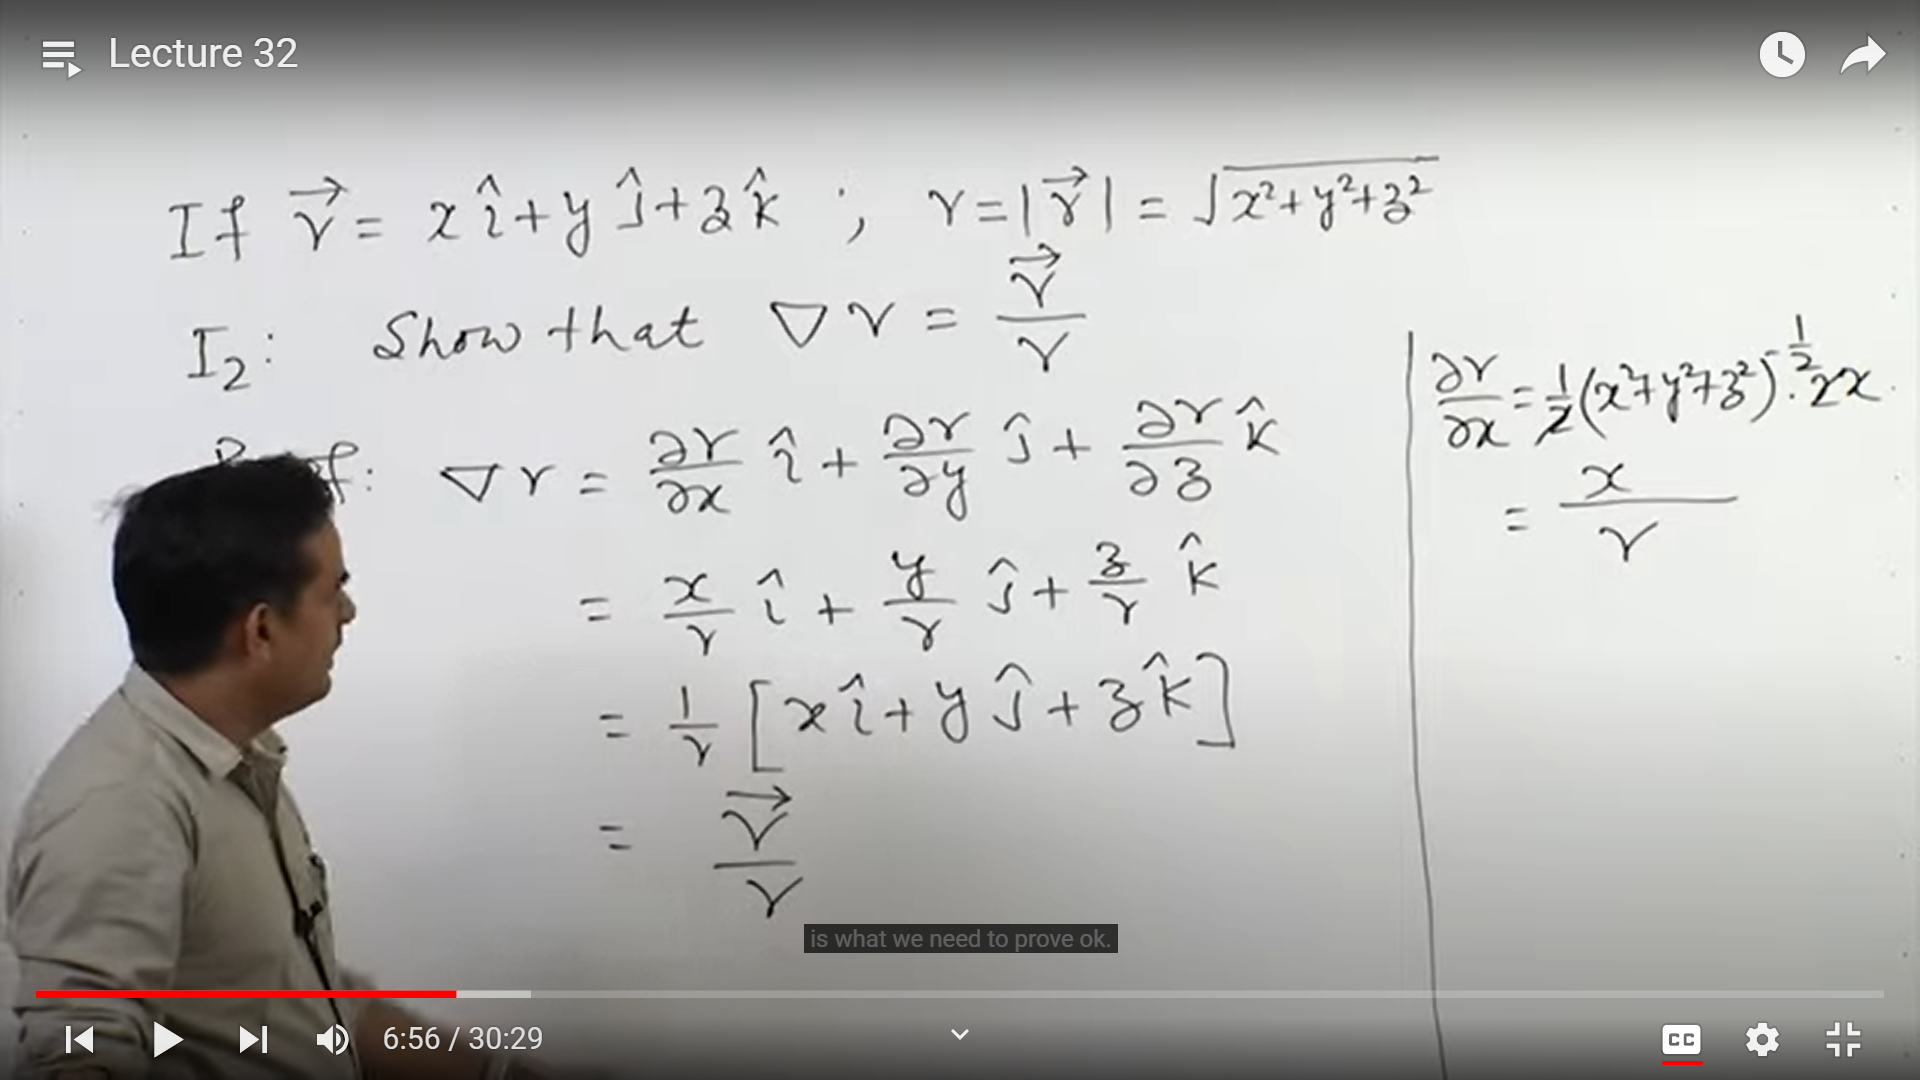 Lecture 32
If r⃗ = x î + y ĵ + z k̂ ; r = |r⃗| = √(x²+y²+z²)
I₂: Show that ∇r = r⃗/r
∇r = ∂r/∂x î + ∂r/∂y ĵ + ∂r/∂z k̂
= x/r î + y/r ĵ + z/r k̂
= 1/r [x î + y ĵ + z k̂]
= r⃗/r
∂r/∂x = 1/2 (x²+y²+z²)^(-1/2) . 2x
= x/r
is what we need to prove ok.
6:56 / 30:29
CC